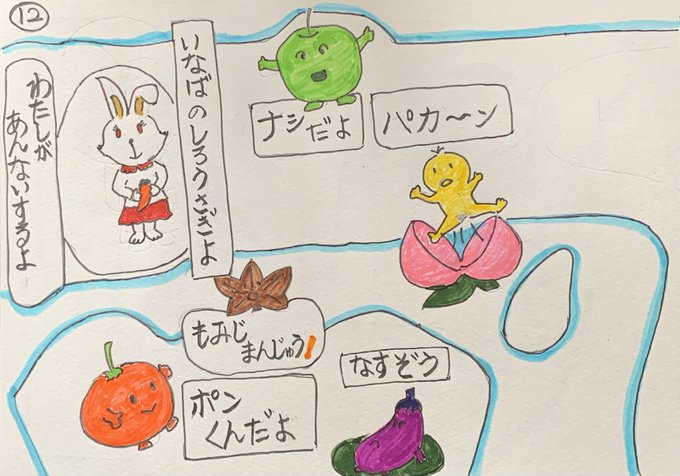 12
わたしが
あんないするよ
いなばのしろうさぎよ
ナシだよ
パカ〜ン
もみじ
まんじゅう!
ポン
くんだよ
なすぞう